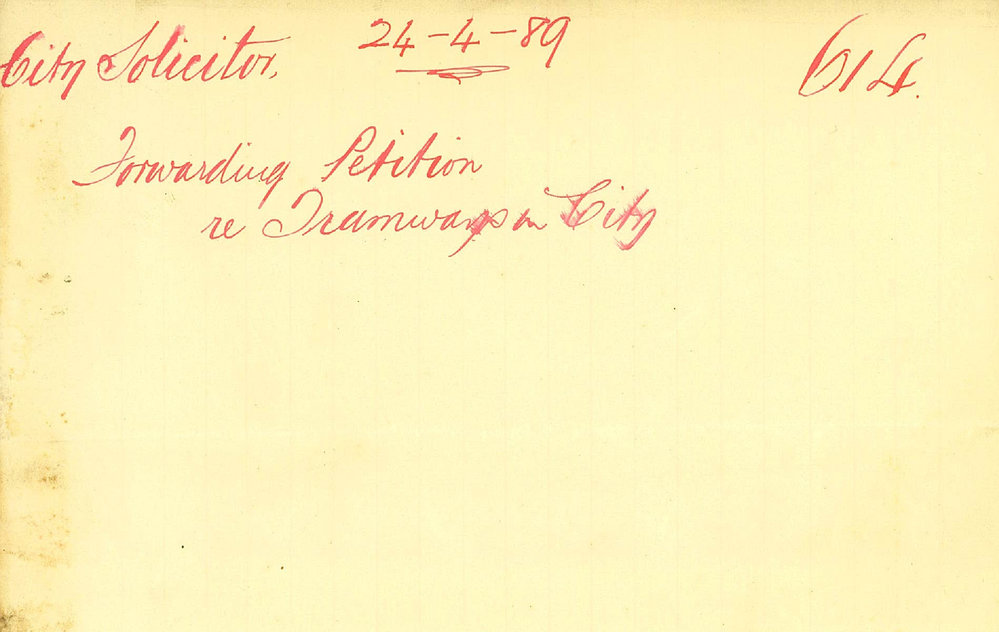 City Solicitor, 24-4-89 614.
Forwarding Petition
re Tramways in City